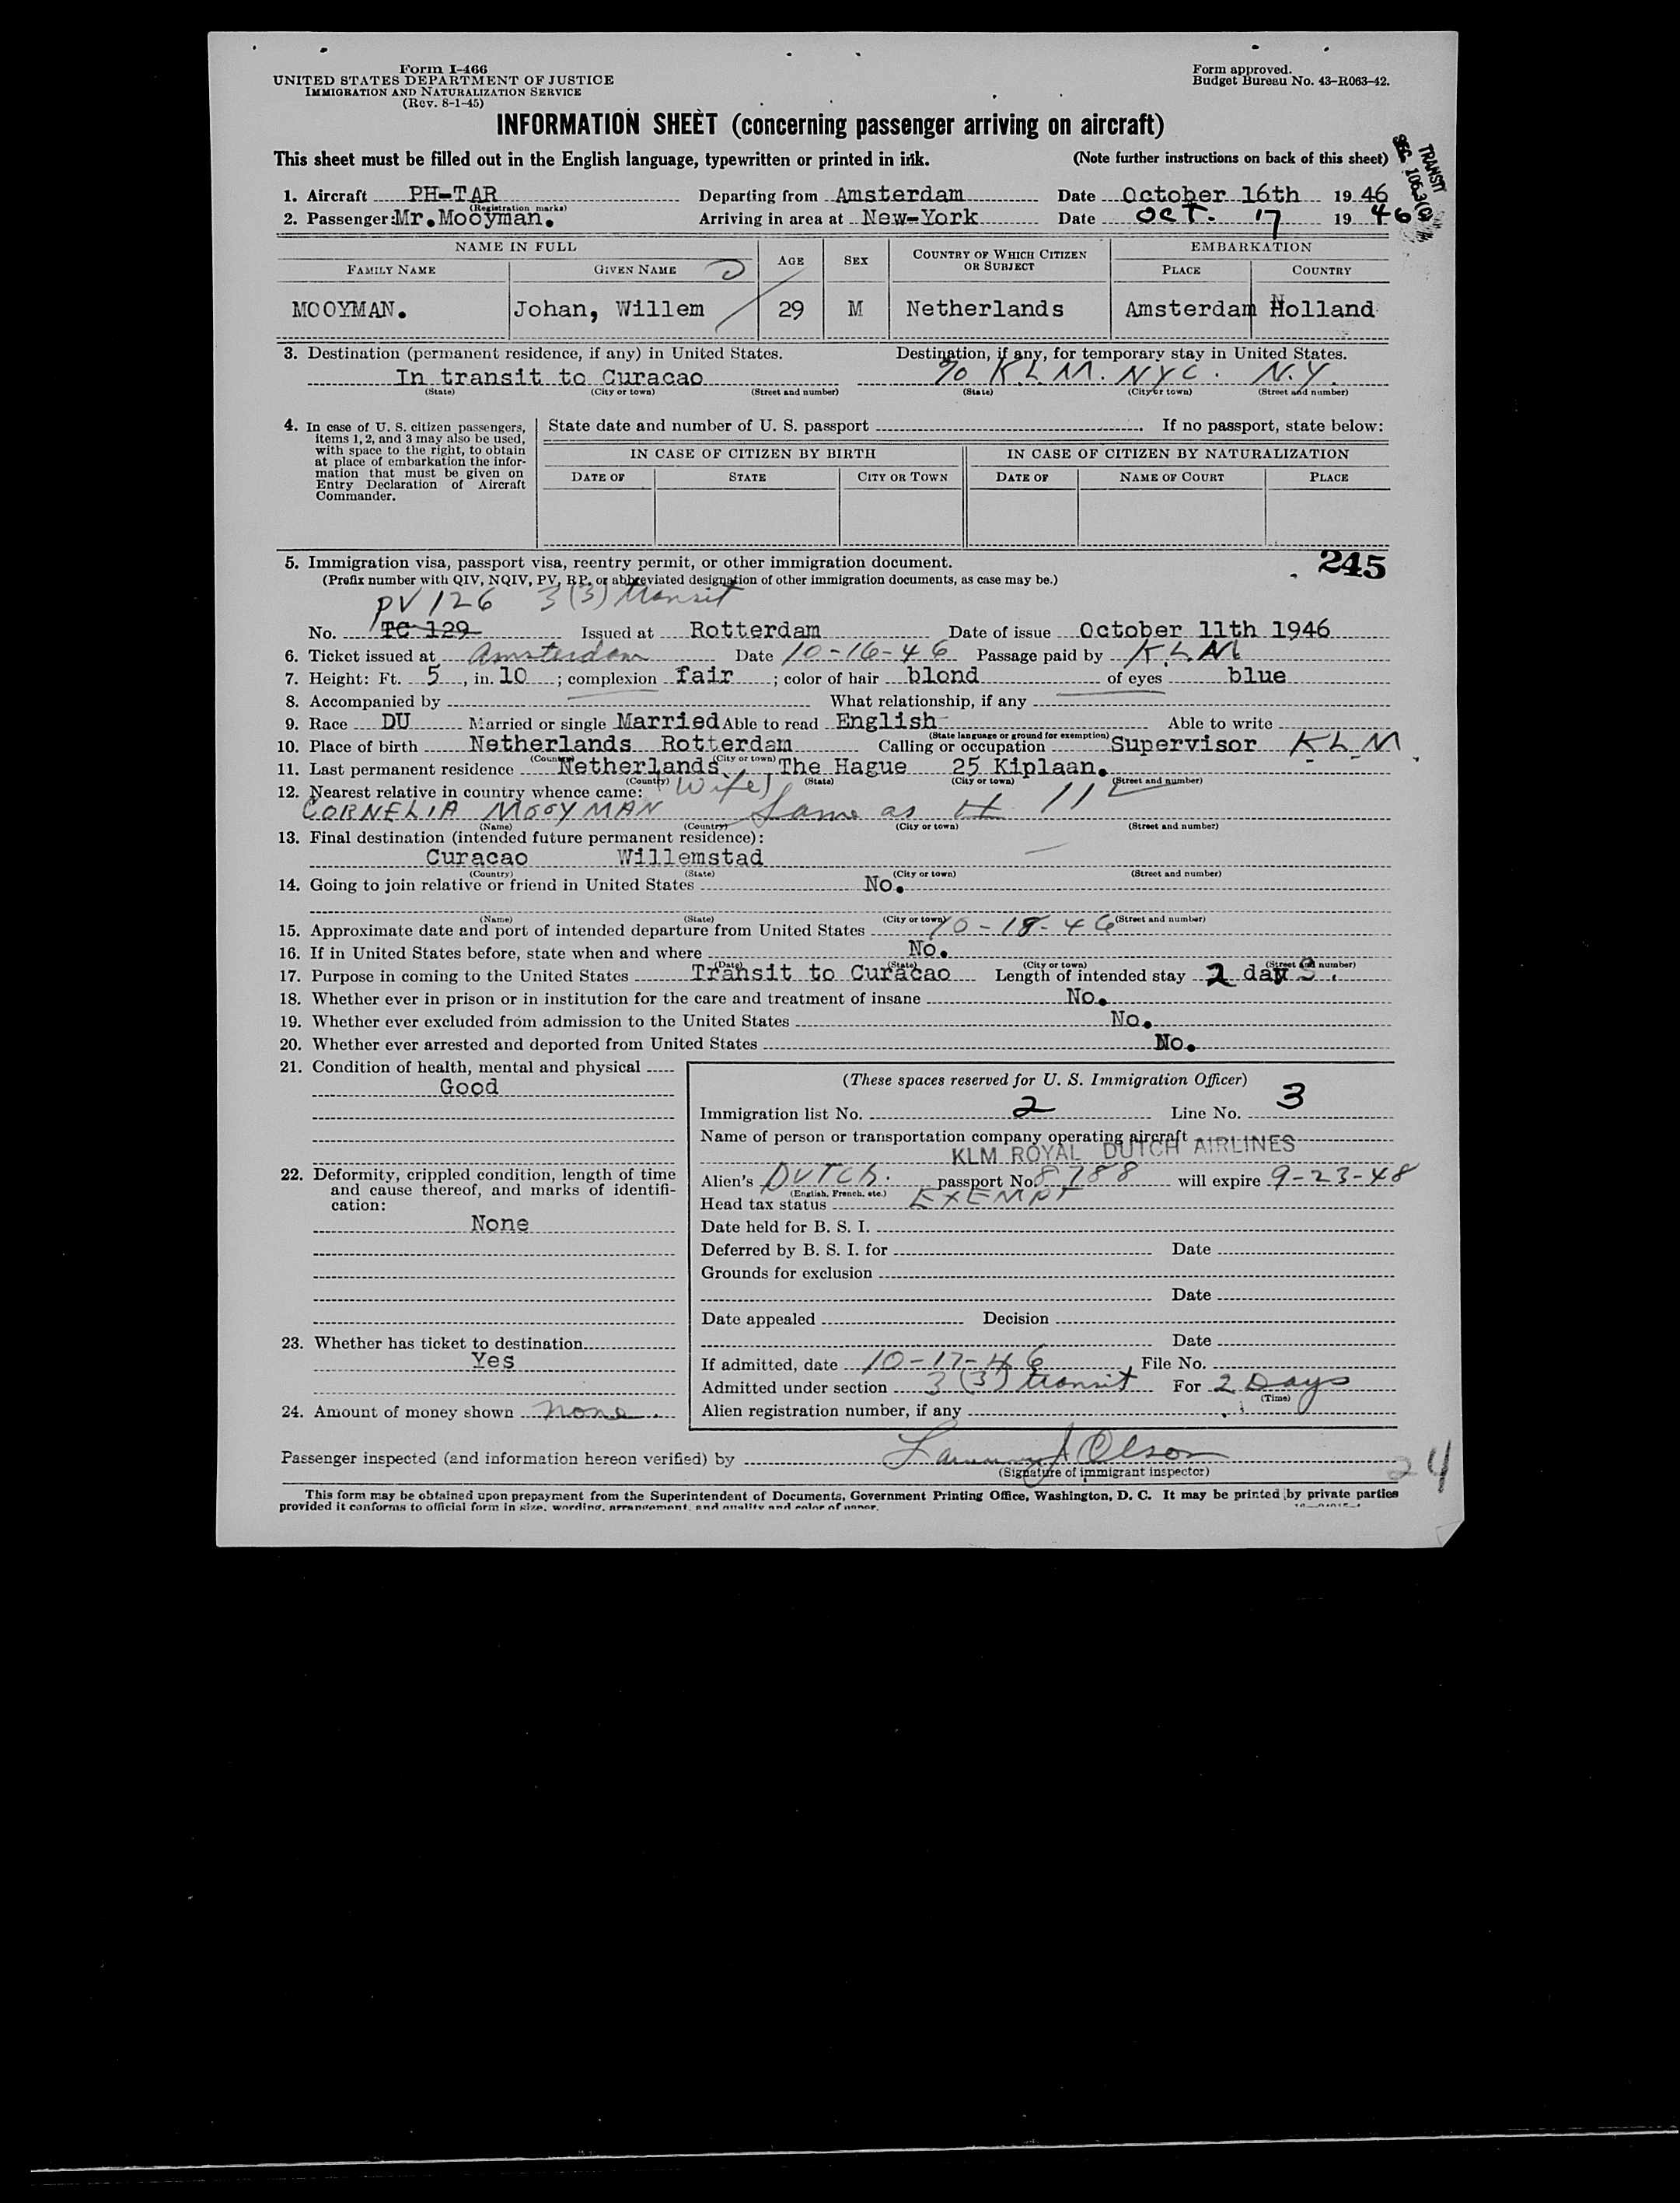 Form I-466
UNITED STATES DEPARTMENT OF JUSTICE
IMMIGRATION AND NATURALIZATION SERVICE
(Rev. 8-1-45)
Form approved.
Budget Bureau No. 43-R063-42.
INFORMATION SHEET (concerning passenger arriving on aircraft)
This sheet must be filled out in the English language, typewritten or printed in ink. (Note further instructions on back of this sheet)
TRANSIT
SEC. 106.3(c)
1. Aircraft PH-TAR Departing from Amsterdam Date October 16th 1946
(Registration marks)
2. Passenger: Mr. Mooyman. Arriving in area at New-York Date OCT. 17 1946
NAME IN FULL AGE SEX COUNTRY OF WHICH CITIZEN OR SUBJECT EMBARKATION
FAMILY NAME GIVEN NAME PLACE COUNTRY
MOOYMAN. Johan, Willem 29 M Netherlands Amsterdam Holland
3. Destination (permanent residence, if any) in United States. Destination, if any, for temporary stay in United States.
In transit to Curacao % K.L.M. NYC. N.Y.
(State) (City or town) (Street and number) (State) (City or town) (Street and number)
4. In case of U. S. citizen passengers, items 1, 2, and 3 may also be used, with space to the right, to obtain at place of embarkation the information that must be given on Entry Declaration of Aircraft Commander.
State date and number of U. S. passport If no passport, state below:
IN CASE OF CITIZEN BY BIRTH IN CASE OF CITIZEN BY NATURALIZATION
DATE OF STATE CITY OR TOWN DATE OF NAME OF COURT PLACE
5. Immigration visa, passport visa, reentry permit, or other immigration document. 245
(Prefix number with QIV, NQIV, PV, RP, or abbreviated designation of other immigration documents, as case may be.)
PV 126 3(3) transit
No. TC 129 Issued at Rotterdam Date of issue October 11th 1946
6. Ticket issued at Amsterdam Date 10-16-46 Passage paid by K.L.M
7. Height: Ft. 5, in. 10; complexion fair; color of hair blond of eyes blue
8. Accompanied by What relationship, if any
9. Race DU Married or single Married Able to read English Able to write
(State language or ground for exemption)
10. Place of birth Netherlands Rotterdam Calling or occupation Supervisor K.L.M
(Country) (City or town)
11. Last permanent residence Netherlands, The Hague 25 Kiplaan.
(Country) (State) (City or town) (Street and number)
12. Nearest relative in country whence came: (Wife)
CORNELIA MOOYMAN Same as # 11
(Name) (Country) (City or town) (Street and number)
13. Final destination (intended future permanent residence):
Curacao Willemstad
(Country) (State) (City or town) (Street and number)
14. Going to join relative or friend in United States No.
(Name) (State) (City or town) (Street and number)
15. Approximate date and port of intended departure from United States 10-18-46
16. If in United States before, state when and where No.
(Date) (State) (City or town) (Street and number)
17. Purpose in coming to the United States Transit to Curacao Length of intended stay 2 days.
18. Whether ever in prison or in institution for the care and treatment of insane No.
19. Whether ever excluded from admission to the United States No.
20. Whether ever arrested and deported from United States No.
21. Condition of health, mental and physical
Good
22. Deformity, crippled condition, length of time and cause thereof, and marks of identification:
None
23. Whether has ticket to destination
Yes
24. Amount of money shown none.
(These spaces reserved for U. S. Immigration Officer)
Immigration list No. 2 Line No. 3
Name of person or transportation company operating aircraft
KLM ROYAL DUTCH AIRLINES
Alien's DUTCH. passport No. 8788 will expire 9-23-48
(English, French, etc.)
Head tax status EXEMPT
Date held for B. S. I.
Deferred by B. S. I. for Date
Grounds for exclusion
Date
Date appealed Decision
Date
If admitted, date 10-17-46, File No.
Admitted under section 3(3) transit For 2 Days
(Time)
Alien registration number, if any
Passenger inspected (and information hereon verified) by Olson
(Signature of immigrant inspector)
24
This form may be obtained upon prepayment from the Superintendent of Documents, Government Printing Office, Washington, D. C. It may be printed by private parties
provided it conforms to official form in size, wording, arrangement, and quality and color of paper.